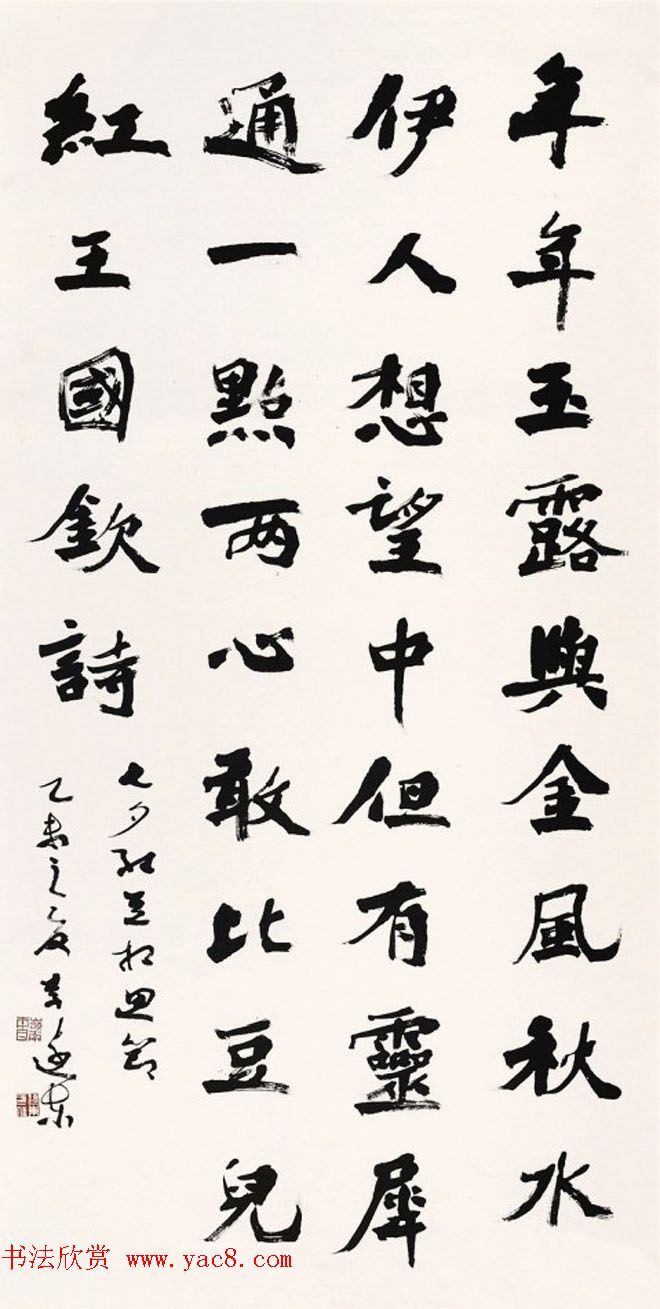 年年玉露與金風秋水
伊人想望中但有靈犀
通一點兩心敢比豆兒
紅王國欽詩
七夕紅豆相思節
乙未之夏李遠東
书法欣赏 www.yac8.com